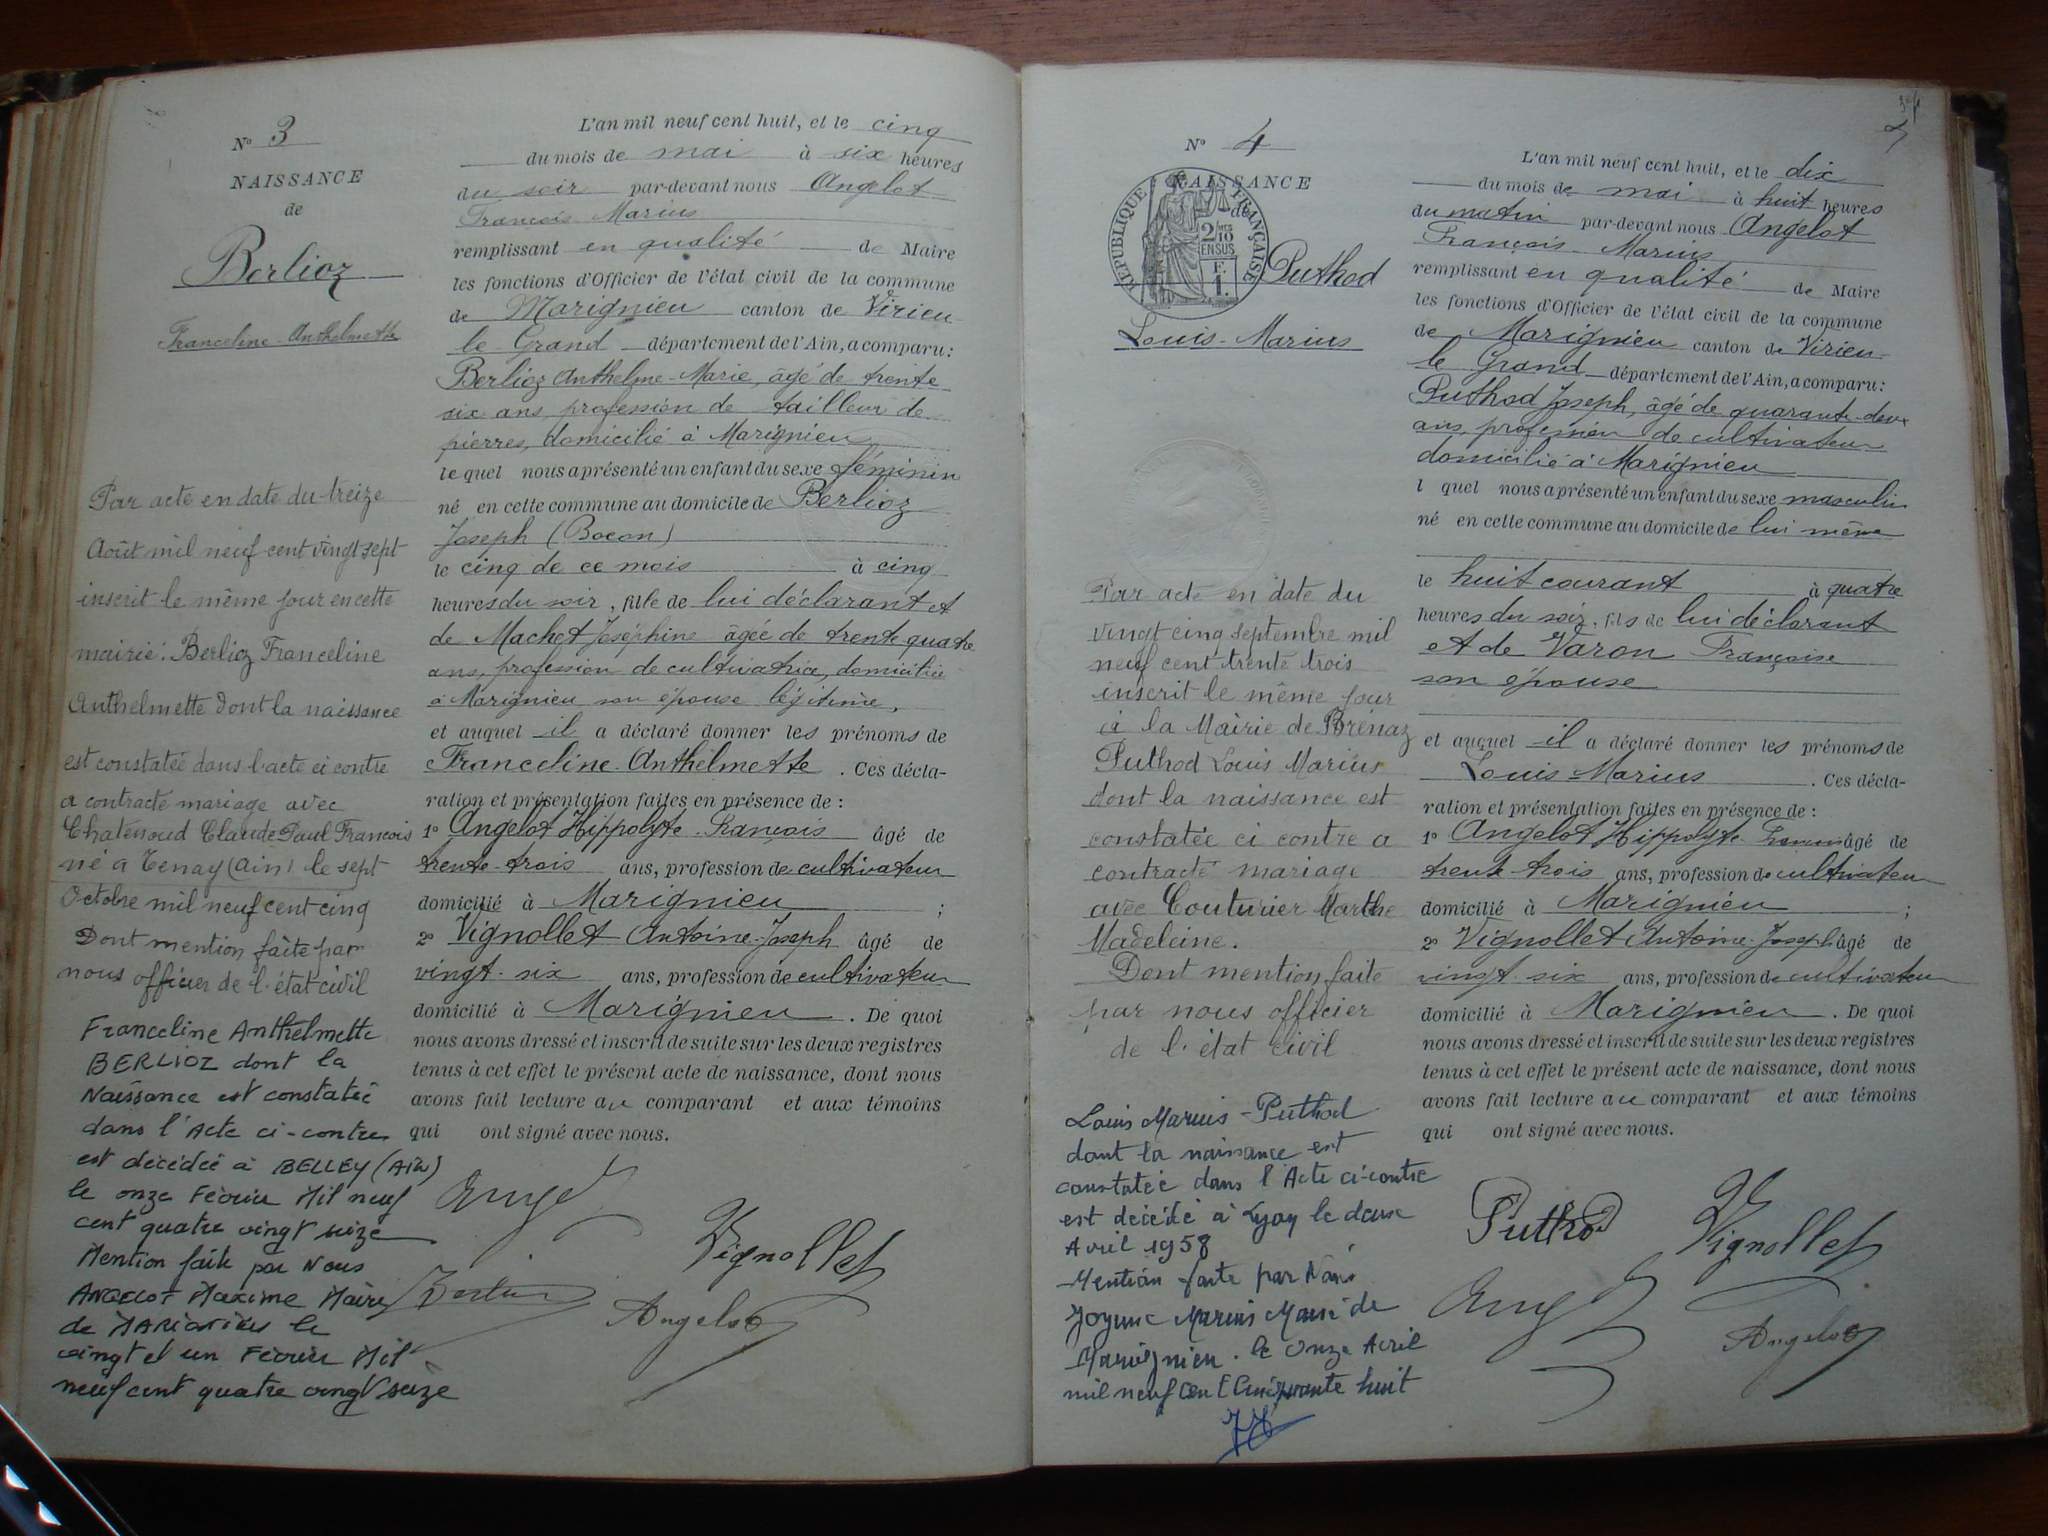 N° 3
NAISSANCE
de
Berlioz
Franceline-Anthelmette
Par acte en date du treize
Août mil neuf cent vingt sept
inscrit le même jour en cette
mairie: Berlioz Franceline
Anthelmette dont la naissance
est constatée dans l'acte ci contre
a contracté mariage avec
Chatenoud Claude Paul François
né à Tenay (Ain) le sept
Octobre mil neuf cent cinq
Dont mention faite par
nous officier de l'état civil
Franceline Anthelmette
BERLIOZ dont la
Naissance est constatée
dans l'Acte ci-contre
est décédée à BELLEY (Ain)
le onze Février Mil neuf
cent quatre vingt seize
Mention faite par Nous
ANGELOT Maxime Maire
de MARIGNIEU le
vingt et un Février Mil
neuf cent quatre vingt seize
L'an mil neuf cent huit, et le cinq
du mois de mai à six heures
du soir par-devant nous Angelot
François Marius
remplissant en qualité de Maire
les fonctions d'Officier de l'état civil de la commune
de Marignieu canton de Virieu
le Grand département de l'Ain, a comparu:
Berlioz Anthelme-Marie, âgé de trente
six ans, profession de tailleur de
pierres, domicilié à Marignieu
le quel nous a présenté un enfant du sexe féminin
né en cette commune au domicile de Berlioz
Joseph (Bocon)
le cinq de ce mois à cinq
heures du soir, fille de lui déclarant et
de Machet Joséphine âgée de trente quatre
ans, profession de cultivatrice, domiciliée
à Marignieu son épouse légitime,
et auquel il a déclaré donner les prénoms de
Franceline-Anthelmette. Ces décla-
ration et présentation faites en présence de:
1° Angelot Hippolyte-François âgé de
trente-trois ans, profession de cultivateur
domicilié à Marignieu;
2° Vignollet Antoine-Joseph âgé de
vingt-six ans, profession de cultivateur
domicilié à Marignieu. De quoi
nous avons dressé et inscrit de suite sur les deux registres
tenus à cet effet le présent acte de naissance, dont nous
avons fait lecture au comparant et aux témoins
qui ont signé avec nous.
Vignollet
Angelot
N° 4
NAISSANCE
de
RÉPUBLIQUE FRANÇAISE
2/10 EN SUS
F. 1.
Puthod
Louis-Marius
Par acte en date du
vingt cinq septembre mil
neuf cent trente trois
inscrit le même jour
à la Mairie de Brénaz
Puthod Louis Marius
dont la naissance est
constatée ci contre a
contracté mariage
avec Couturier Marthe
Madeleine.
Dont mention faite
par nous officier
de l'état civil
Louis Marius-Puthod
dont la naissance est
constatée dans l'Acte ci-contre
est décédé à Lyon le deux
Avril 1958
Mention faite par Nous
Marius Maire de
Marignieu. le Onze Avril
mil neuf cent Cinquante huit
L'an mil neuf cent huit, et le dix
du mois de mai à huit heures
du matin par-devant nous Angelot
François Marius
remplissant en qualité de Maire
les fonctions d'Officier de l'état civil de la commune
de Marignieu canton de Virieu-
le Grand département de l'Ain, a comparu:
Puthod Joseph, âgé de quarante-deux
ans, profession de cultivateur
domicilié à Marignieu
l quel nous a présenté un enfant du sexe masculin
né en cette commune au domicile de lui même
le huit courant à quatre
heures du soir, fils de lui déclarant
et de Varon Françoise
son épouse
et auquel il a déclaré donner les prénoms de
Louis-Marius. Ces décla-
ration et présentation faites en présence de:
1° Angelot Hippolyte âgé de
trente-trois ans, profession de cultivateur
domicilié à Marignieu;
2° Vignollet Antoine-Joseph âgé de
vingt-six ans, profession de cultivateur
domicilié à Marignieu. De quoi
nous avons dressé et inscrit de suite sur les deux registres
tenus à cet effet le présent acte de naissance, dont nous
avons fait lecture au comparant et aux témoins
qui ont signé avec nous.
Puthod
Vignollet
Angelot